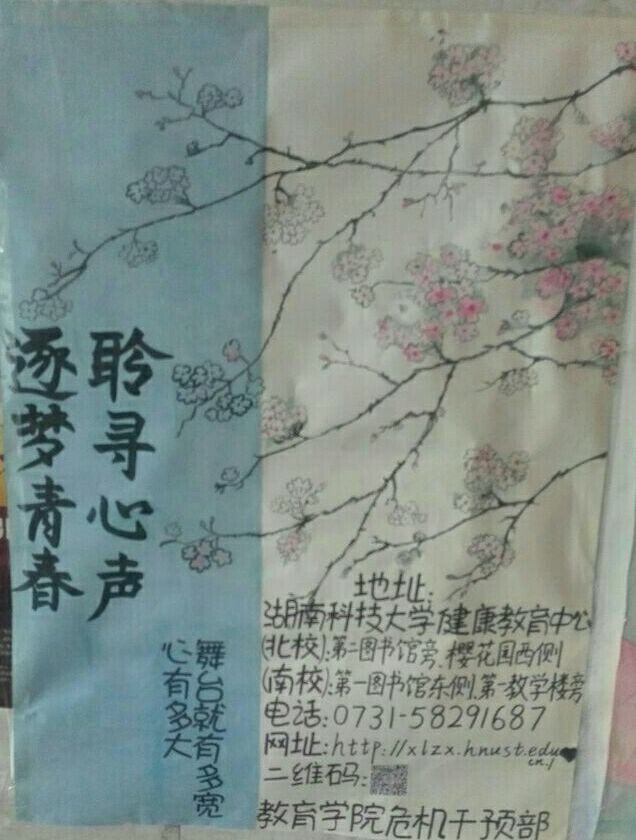 聆寻心声
逐梦青春
心有多大
舞台就有多宽
地址:
湖南科技大学健康教育中心
(北校):第二图书馆旁.樱花园西侧
(南校):第一图书馆东侧.第一教学楼旁
电话:0731-58291687
网址:http://xlzx.hnust.edu
cn./
二维码:
教育学院危机干预部